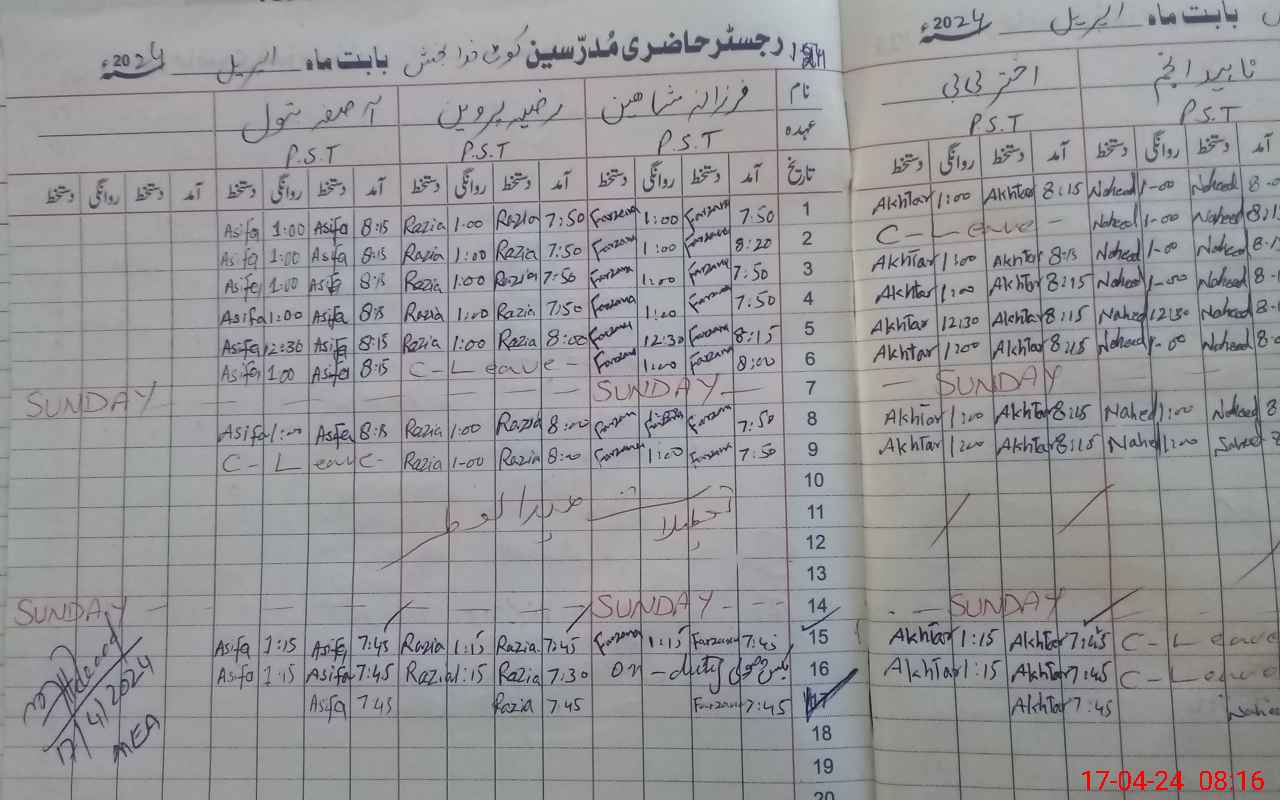 رجسٹر حاضری مُدرّسین کوٹ خدا بخش بابت ماہ اپریل 2024ء
نام فرزانہ شاہین رضیہ پروین آصفہ بتول
عہدہ P.S.T P.S.T P.S.T
تاریخ آمد دستخط روانگی دستخط آمد دستخط روانگی دستخط آمد دستخط روانگی دستخط آمد دستخط روانگی دستخط
1 7:50 Farzana 1:00 Farzana 7:50 Razia 1:00 Razia 8:15 Asifa 1:00 Asifa
2 8:20 Farzana 1:00 Farzana 7:50 Razia 1:00 Razia 8:15 Asifa 1:00 Asifa
3 7:50 Farzana 1:00 Farzana 7:50 Razia 1:00 Razia 8:15 Asifa 1:00 Asifa
4 7:50 Farzana 1:00 Farzana 7:50 Razia 1:00 Razia 8:15 Asifa 1:00 Asifa
5 8:15 Farzana 12:30 Farzana 8:00 Razia 1:00 Razia 8:15 Asifa 12:30 Asifa
6 8:00 Farzana 1:00 Farzana C-Leave- 8:15 Asifa 1:00 Asifa
7 SUNDAY SUNDAY
8 7:50 Farzana Farzana 8:00 Razia 1:00 Razia 8:15 Asifa 1:00 Asifa
9 7:50 Farzana 1:00 Farzana 8:00 Razia 1-00 Razia C-Leave-
10
11 تعطیلات عیدالفطر
12
13
14 SUNDAY SUNDAY
15 7:45 Farzana 1:15 Farzana 7:45 Razia 1:15 Razia 7:45 Asifa 1:15 Asifa
16 on-duty 7:30 Razia 1:15 Razia 7:45 Asifa 1:15 Asifa
17 7:45 Farzana 7:45 Razia 7:45 Asifa
18
19
20
17/4/2024
MEA
بابت ماہ اپریل 2024ء
ناہید انجم اختر بی بی
P.S.T P.S.T
آمد دستخط روانگی دستخط آمد دستخط روانگی دستخط
Naheed 1-00 Naheed 8:15 Akhtar 1:00 Akhtar
Naheed 1-00 Naheed C-Leave-
Naheed 1-00 Naheed 8:15 Akhtar 1:00 Akhtar
Naheed 1-00 Naheed 8:15 Akhtar 1:00 Akhtar
Naheed 12:30 Naheed 8:15 Akhtar 12:30 Akhtar
Naheed 1-00 Naheed 8:15 Akhtar 1:00 Akhtar
SUNDAY
Naheed 1:00 Nahed 8:15 Akhtar 1:00 Akhtar
1:00 Nahed 8:15 Akhtar 1:00 Akhtar
SUNDAY
C-Leave 7:45 Akhtar 1:15 Akhtar
C-Leave 7:45 Akhtar 1:15 Akhtar
7:45 Akhtar
17-04-24 08:16